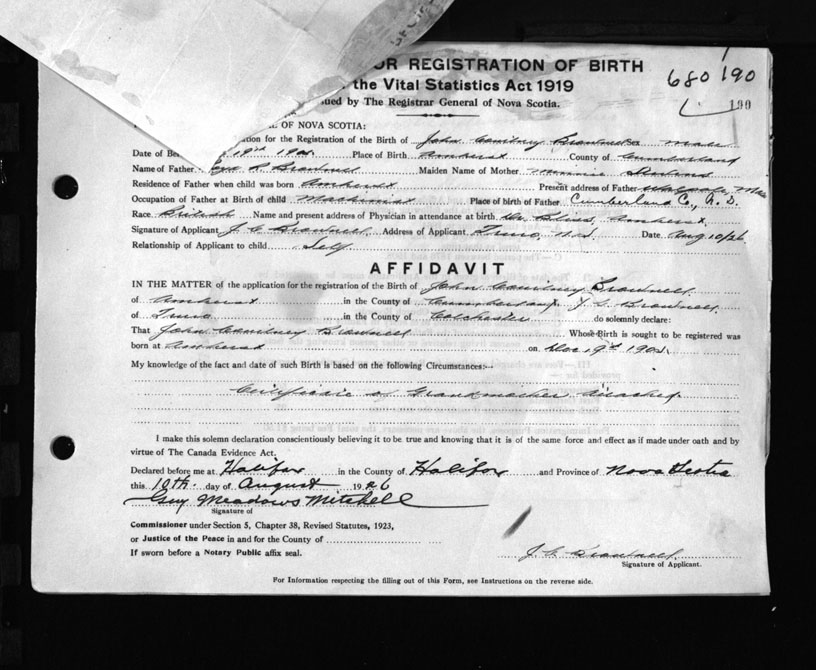 OR REGISTRATION OF BIRTH
the Vital Statistics Act 1919
680190
ued by The Registrar General of Nova Scotia.
190
L OF NOVA SCOTIA:
ation for the Registration of the Birth of John Courtney Brownell Sex Male
Date of Bi 19th 190 Place of Birth Amherst County of Cumberland
Name of Father R. Brownell Maiden Name of Mother Minnie
Residence of Father when child was born Amherst Present address of Father Walpole, Mass
Occupation of Father at Birth of child Machinist Place of birth of Father Cumberland Co., N.S.
Race British Name and present address of Physician in attendance at birth Dr. Bliss, Amherst.
Signature of Applicant J. C. Brownell Address of Applicant Truro, N.S. Date Aug 10/26
Relationship of Applicant to child Self
AFFIDAVIT
IN THE MATTER of the application for the registration of the Birth of John Courtney Brownell
of Amherst in the County of Cumberland J. C. Brownell
of Truro in the County of Colchester do solemnly declare:
That John Courtney Brownell Whose Birth is sought to be registered was
born at Amherst on Dec 19th 190
My knowledge of the fact and date of such Birth is based on the following Circumstances:—
Certificate of Grandmother attached.
I make this solemn declaration conscientiously believing it to be true and knowing that it is of the same force and effect as if made under oath and by
virtue of The Canada Evidence Act.
Declared before me at Halifax in the County of Halifax and Province of Nova Scotia
this 10th day of August 1926
Guy Meadows Mitchell
Signature of
Commissioner under Section 5, Chapter 38, Revised Statutes, 1923,
or Justice of the Peace in and for the County of
If sworn before a Notary Public affix seal.
J. C. Brownell
Signature of Applicant.
For Information respecting the filling out of this Form, see Instructions on the reverse side.